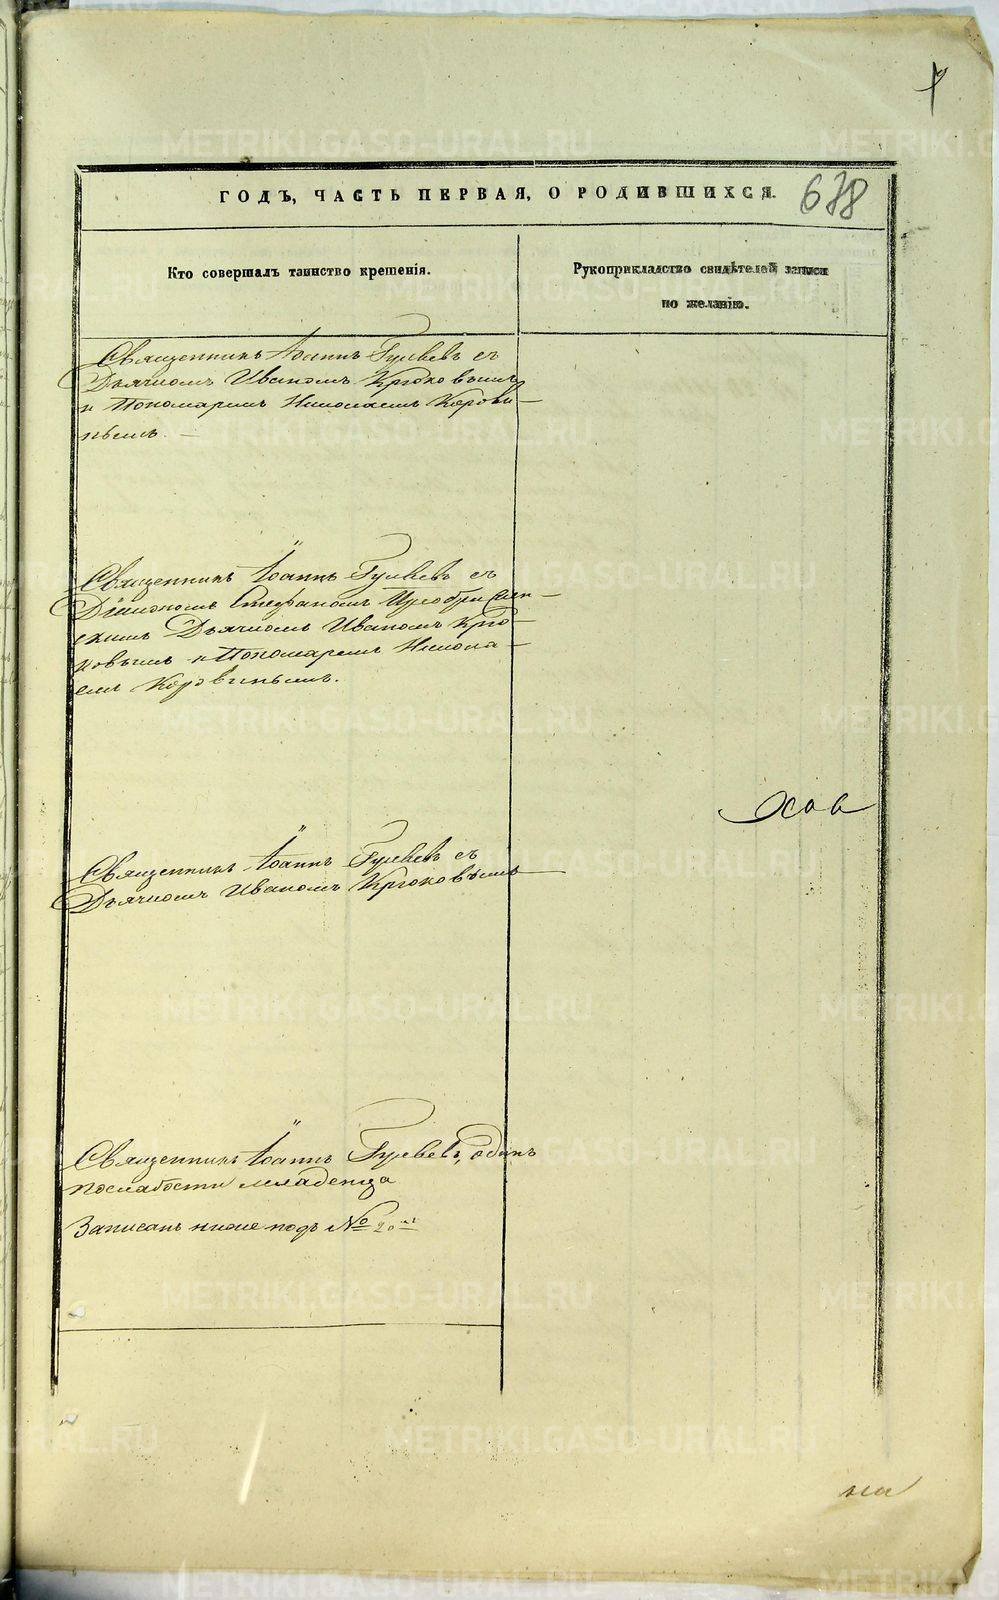 678
ГОДЪ, ЧАСТЬ ПЕРВАЯ, О РОДИВШИХСЯ.
Кто совершалъ таинство крещенія.
Рукоприкладство свидѣтелей записи
по желанію.
Священникъ Іоаннъ Гуляевъ съ
Дьячкомъ Иваномъ Крюковымъ
и Пономаремъ Николаемъ Корови-
нымъ. –
Священникъ Іоаннъ Гуляевъ съ
Діакономъ Стефаномъ Преображен-
скимъ Дьячкомъ Иваномъ Крю-
ковымъ и Пономаремъ Никола-
емъ Коровинымъ.
Священникъ Іоаннъ Гуляевъ съ
Дьячкомъ Иваномъ Крюковымъ
Священникъ Іоаннъ Гуляевъ, одинъ
послабости младенца
Записанъ ниже подъ № 20мъ
METRIKI.GASO-URAL.RU